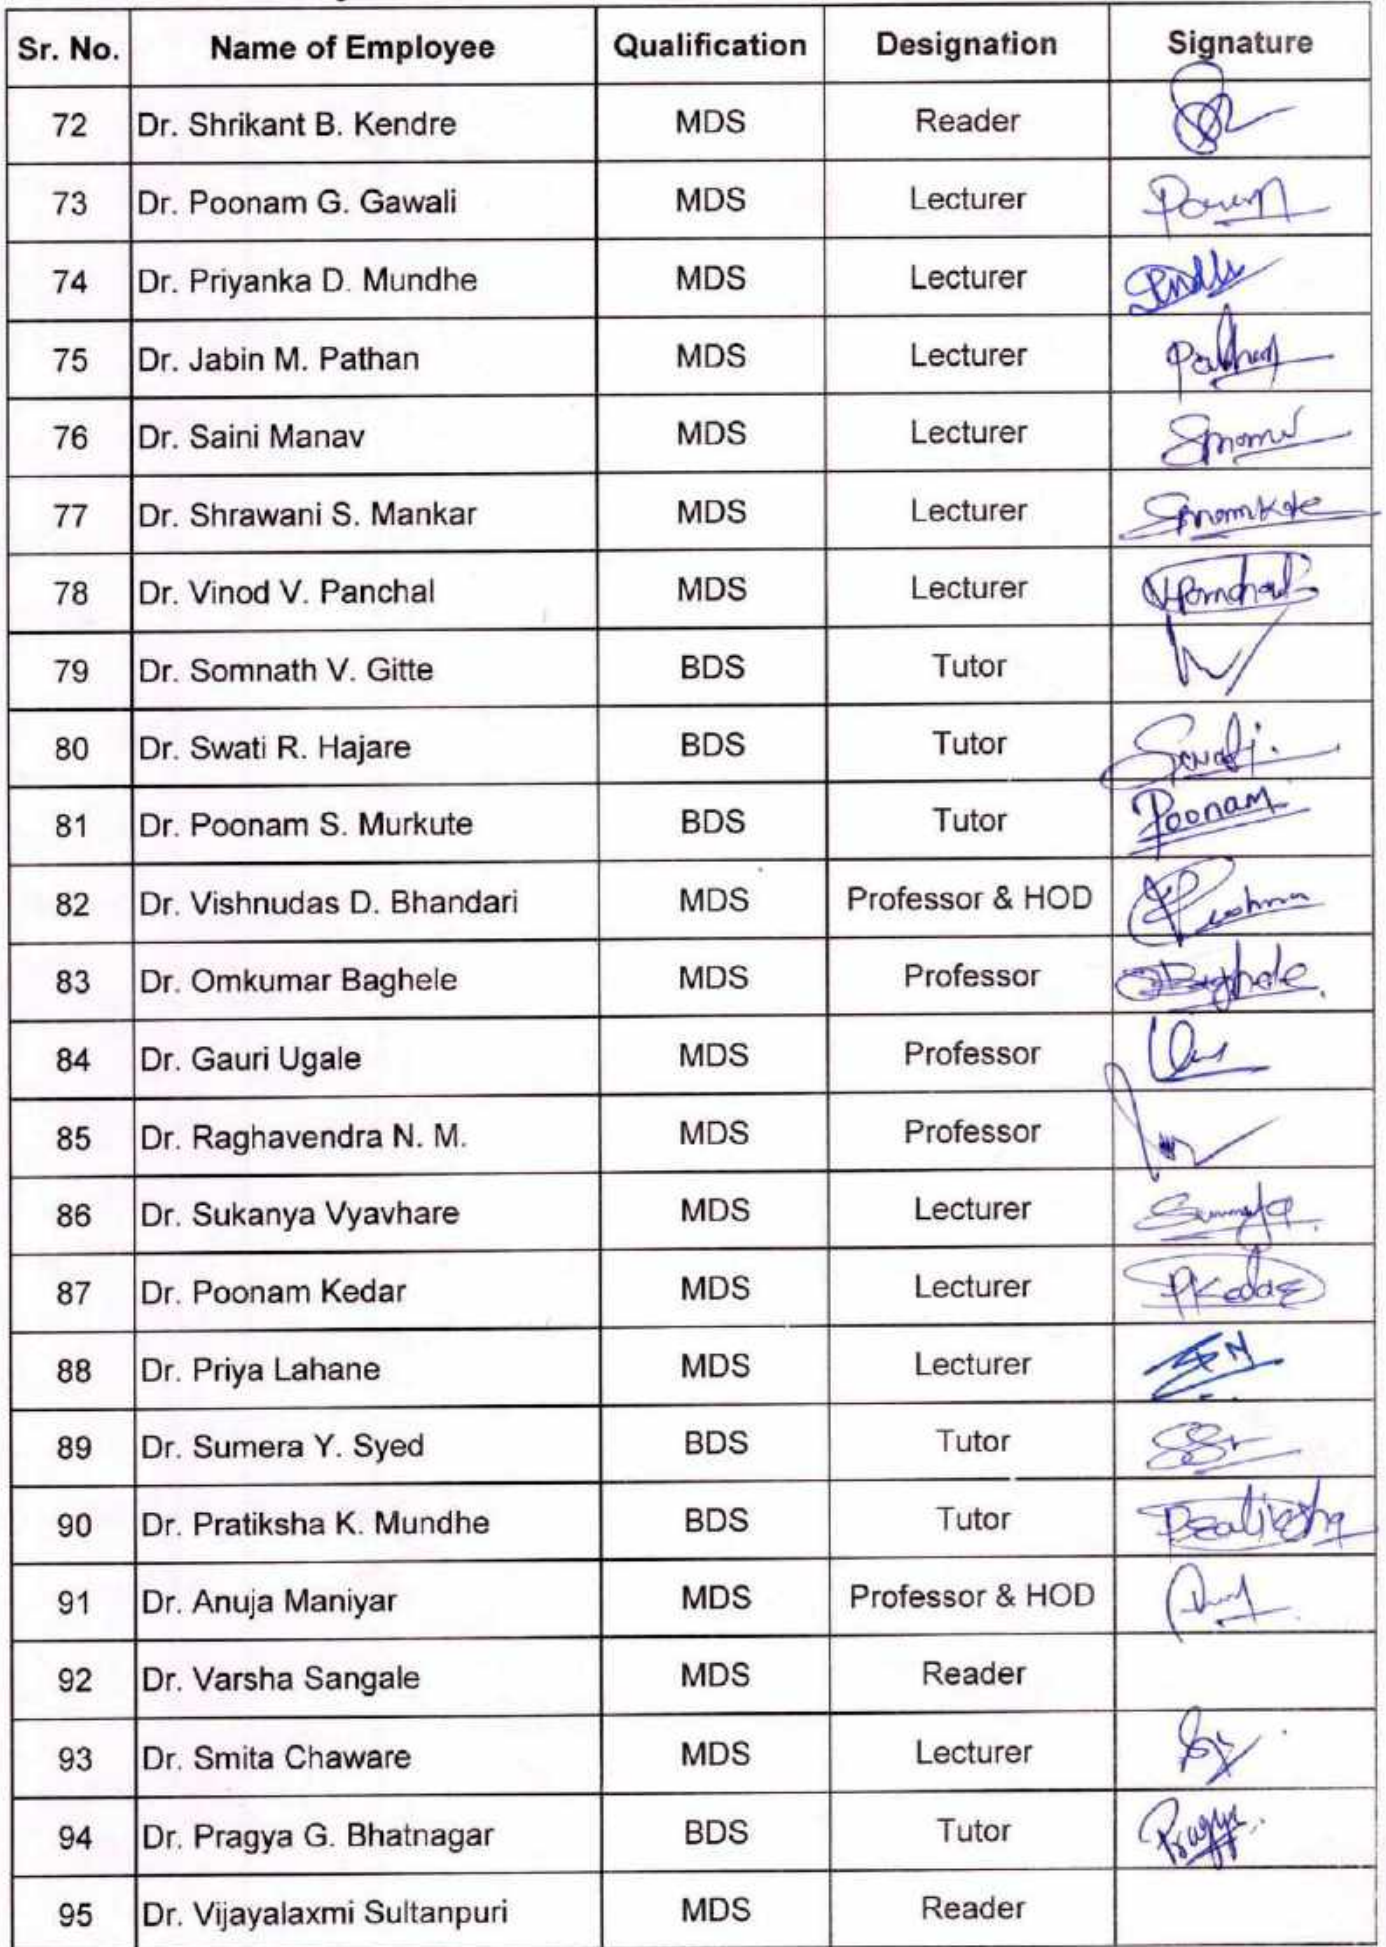 Sr. No. Name of Employee Qualification Designation Signature
72 Dr. Shrikant B. Kendre MDS Reader
73 Dr. Poonam G. Gawali MDS Lecturer
74 Dr. Priyanka D. Mundhe MDS Lecturer
75 Dr. Jabin M. Pathan MDS Lecturer
76 Dr. Saini Manav MDS Lecturer
77 Dr. Shrawani S. Mankar MDS Lecturer
78 Dr. Vinod V. Panchal MDS Lecturer
79 Dr. Somnath V. Gitte BDS Tutor
80 Dr. Swati R. Hajare BDS Tutor
81 Dr. Poonam S. Murkute BDS Tutor Poonam
82 Dr. Vishnudas D. Bhandari MDS Professor & HOD
83 Dr. Omkumar Baghele MDS Professor
84 Dr. Gauri Ugale MDS Professor
85 Dr. Raghavendra N. M. MDS Professor
86 Dr. Sukanya Vyavhare MDS Lecturer
87 Dr. Poonam Kedar MDS Lecturer PKedar
88 Dr. Priya Lahane MDS Lecturer
89 Dr. Sumera Y. Syed BDS Tutor
90 Dr. Pratiksha K. Mundhe BDS Tutor Pratiksha
91 Dr. Anuja Maniyar MDS Professor & HOD
92 Dr. Varsha Sangale MDS Reader
93 Dr. Smita Chaware MDS Lecturer
94 Dr. Pragya G. Bhatnagar BDS Tutor
95 Dr. Vijayalaxmi Sultanpuri MDS Reader